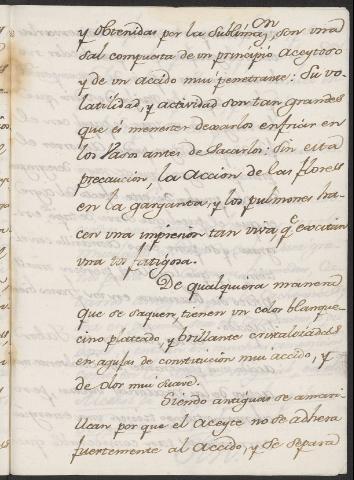 y obtenidas por la Sublimaz.on, son una
sal compuesta de un principio Aceytoso
y de un Accido mui penetrante: Su vo-
latilidad, y actividad son tan grandes
que és menester dexarlos enfriar en
los Vasos antes de Sacarlos: Sin esta
precaucion, la Accion de las flores
en la garganta, y los pulmones ha-
cen una impresion tan viva, q.e excitan
una tos fatigosa.
De qualquiera manera
que se saquen, tienen un color blanque-
cino plateado, y brillante cristalizadas
en agujas de constitución mui accido, y
de olor mui suave.
Siendo antiguas se amari-
llean por que el Aceyte no se adhera
fuertemente al Accido, y se separa